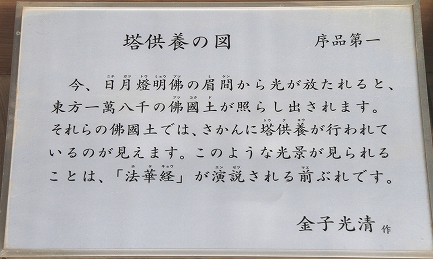 塔供養の図 序品第一
今、日月燈明佛の眉間から光が放たれると、
東方一萬八千の佛國土が照らし出されます。
それらの佛國土では、さかんに塔供養が行われて
いるのが見えます。このような光景が見られる
ことは、「法華経」が演説される前ぶれです。
金子光清 作